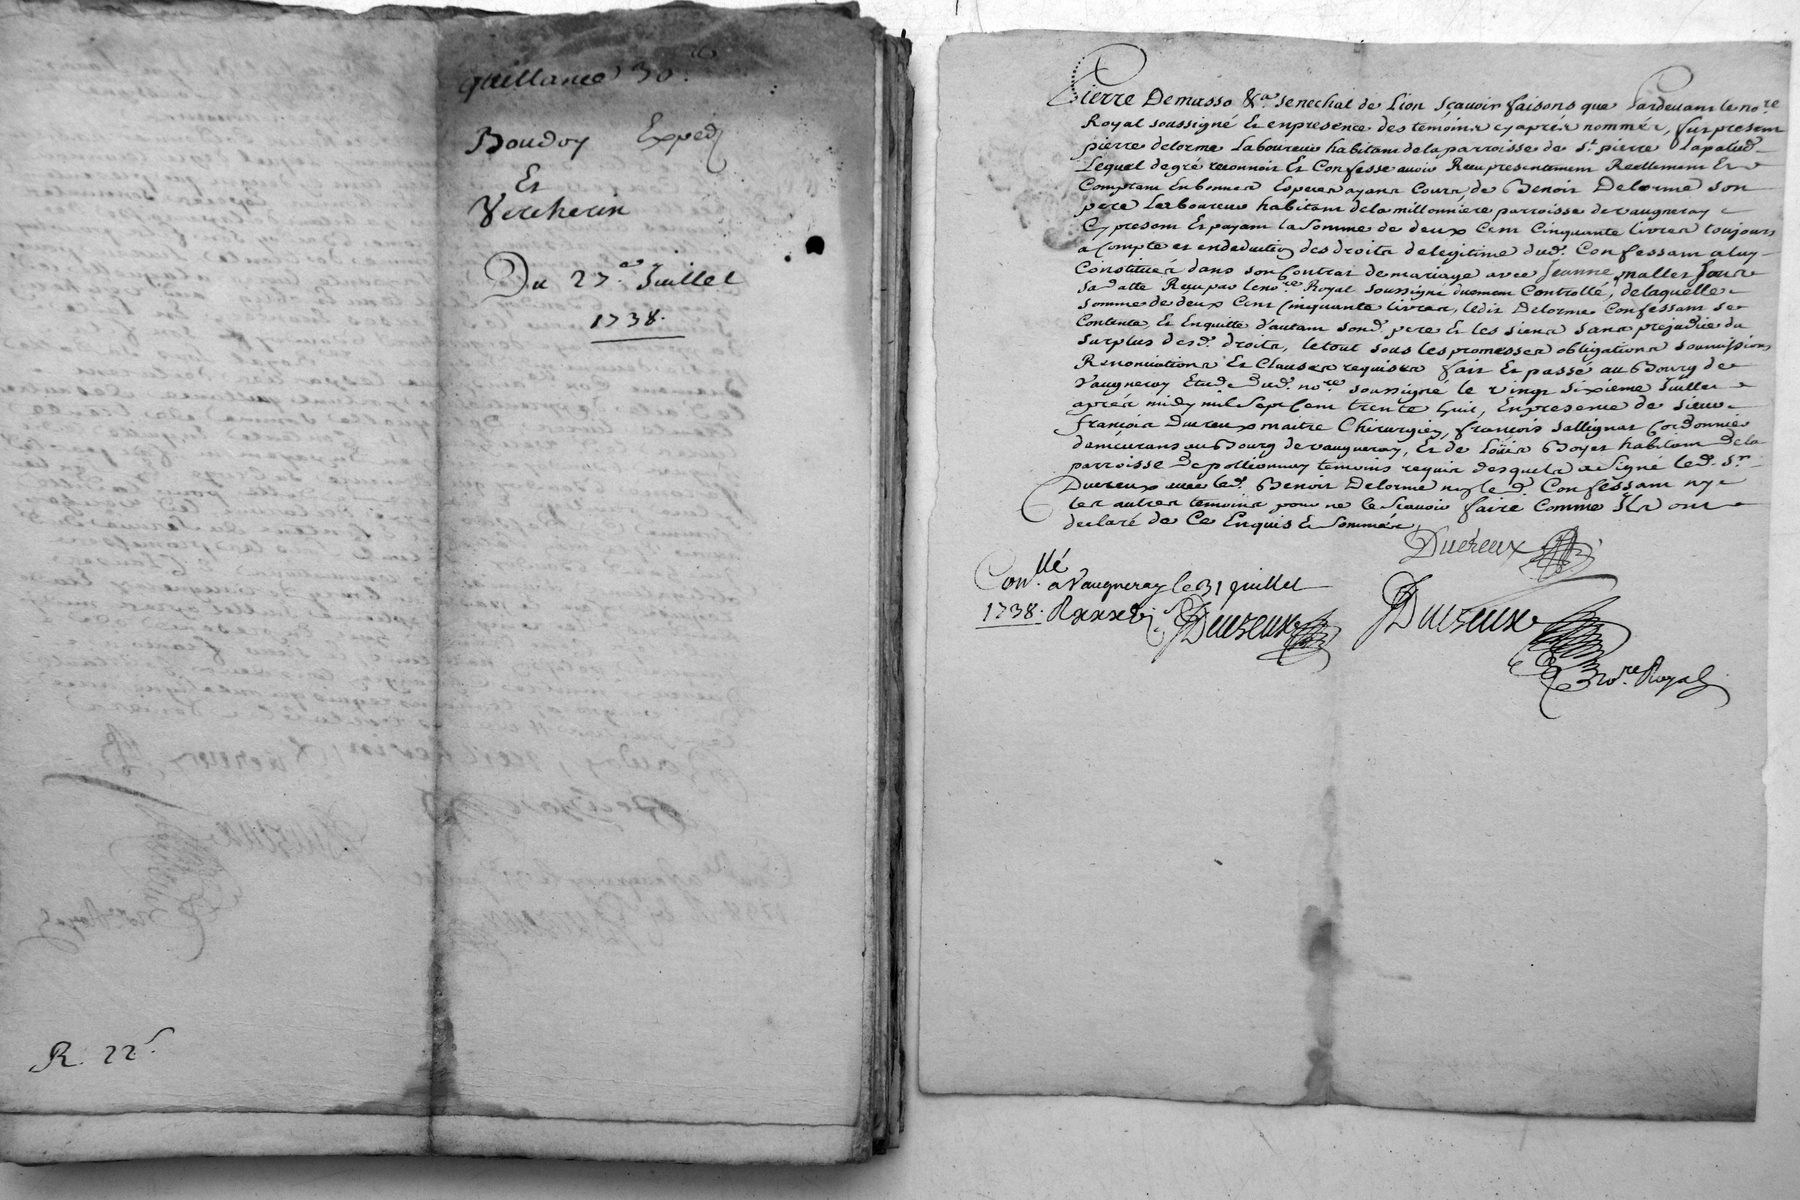 quittance 30.
Boudoy Exped
Et
Vercherin
Du 27.e Juillet
1738.
R. 22s.
Pierre Demasso &a. senechal de Lion sçavoir faisons que Pardevant le nore
Royal soussigné Et en presence des témoins cy aprés nommés, fut present
pierre delorme Laboureur habitant de la parroisse de St. pierre Lapalud
Lequel de gré reconnoit Et Confesse avoir Reçu presentement Reellement Et
Comptant En bonnes Especes ayans Cours de Benoit Delorme son
pere Laboureur habitant de la millonniere parroisse de vaugneray
Cy present Et payant la Somme de deux Cent Cinquante livres toujours
a Compte et en deduction des droits de legitime dud. Confessant a luy
Constitués dans son Contrat de mariage avec Jeanne mallet sous
sa datte Reçu par le nore Royal soussigné duement Controllé, de laquelle
somme de deux Cent Cinquante livres, ledit Delorme Confessant se
Contente, Et En quitte d'autant sond. pere Et les siens sans prejudice du
surplus desd. droits, le tout sous les promesses obligations soumissions
Renonciations Et Clauses requises fait Et passé au Bourg de
Vaugneray Etude dud. nore soussigné le vingt sixieme Juillet
aprés midy mil sept Cent trente huit, En presence de sieur
françois Ducreux maitre Chirurgien, françois sallignat Cordonnier
demeurans au Bourg de vaugneray, Et de Loüis Boyer habitant de la
parroisse de pollionnay temoins requis desquels a signé led. Sr.
Ducreux avec led. Benoit Delorme ny led. Confessant ny
les autres temoins pour ne le sçavoir faire Comme Ils ont
declaré de Ce Enquis & sommés
Ducreux
Conllé. a Vaugneray le 31 Juillet
1738. R Ducreux
Ducreux
Nore. Royal